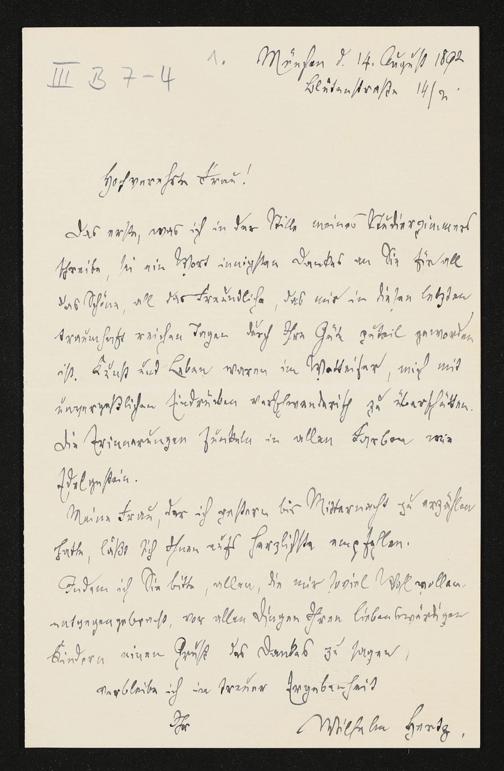 III B 7-4
1. München d. 14. August 1892
Blütenstraße 14/2.
Hochverehrte Frau!
Das erste, was ich in der Stille meines Studierzimmers
schreibe, sei ein Wort innigsten Dankes an Sie für all
das Schöne, all das Freundliche, das mir in diesen letzten
traumhaft reichen Tagen durch Ihre Güte zuteil geworden
ist. Kunst und Leben waren im Wetteifer, mich mit
unvergeßlichen Eindrücken verschwenderisch zu überschütten.
Die Erinnerungen funkeln in allen Farben wie
Edelgestein.
Meine Frau, der ich gestern bis Mitternacht zu erzählen
hatte, läßt sich Ihnen aufs herzlichste empfehlen.
Indem ich Sie bitte, allen, die mir soviel Wohlwollen
entgegengebracht, vor allen Dingen Ihren liebenswürdigen
Kindern einen Gruß des Dankes zu sagen,
verbleibe ich in treuer Ergebenheit
Ihr
Wilhelm Hertz.